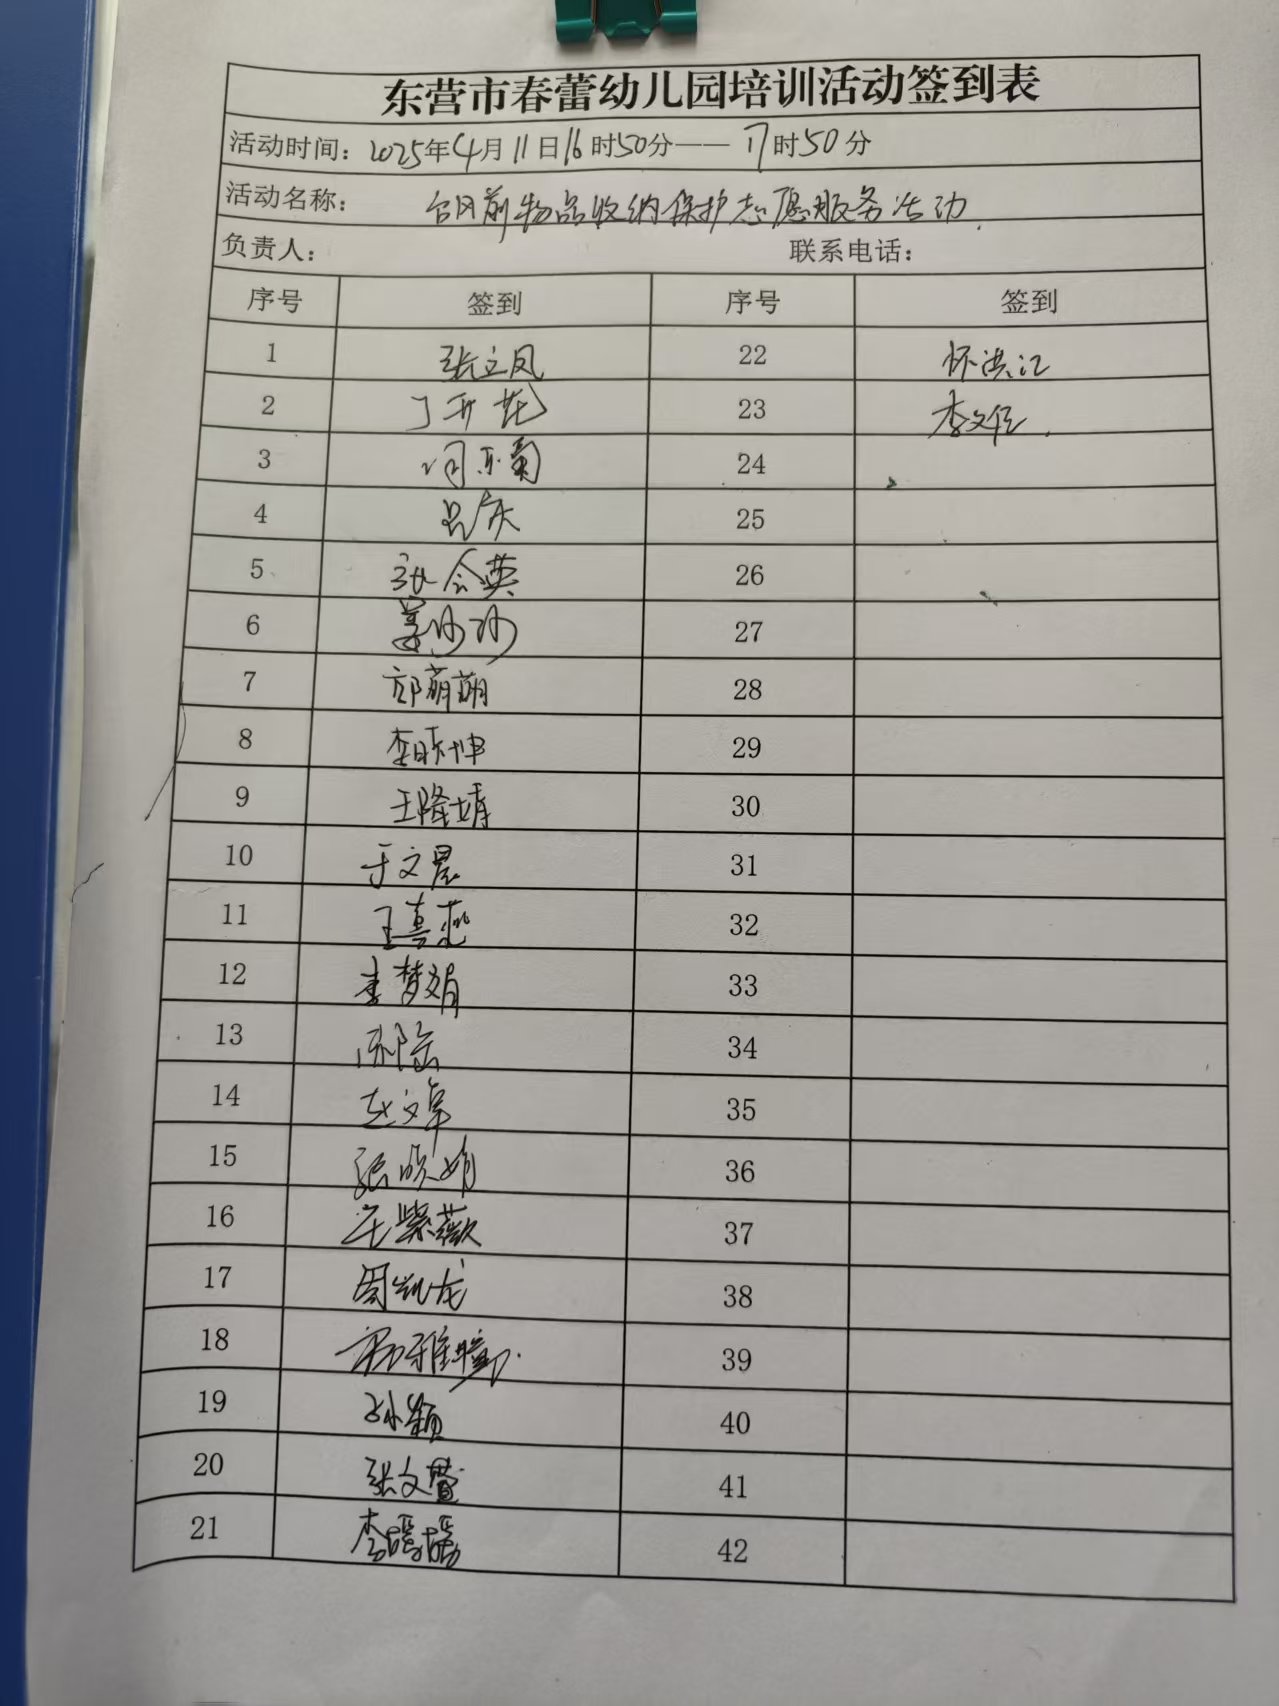 东营市春蕾幼儿园培训活动签到表
活动时间：2025年4月11日16时50分——17时50分
活动名称： 台风前物品收纳保护志愿服务活动
负责人： 联系电话：
序号 签到 序号 签到
1 张立凤 22 怀洪江
2 丁开花 23 李文
3 24
4 吕庆 25
5 张会英 26
6 姜沙沙 27
7 邴萌萌 28
8 李晓坤 29
9 王隆婧 30
10 于文晨 31
11 王喜燕 32
12 李梦娟 33
13 34
14 赵文军 35
15 张晓娟 36
16 王紫薇 37
17 周凯龙 38
18 雅瞳 39
19 孙颖 40
20 张文萱 41
21 李瑶瑶 42